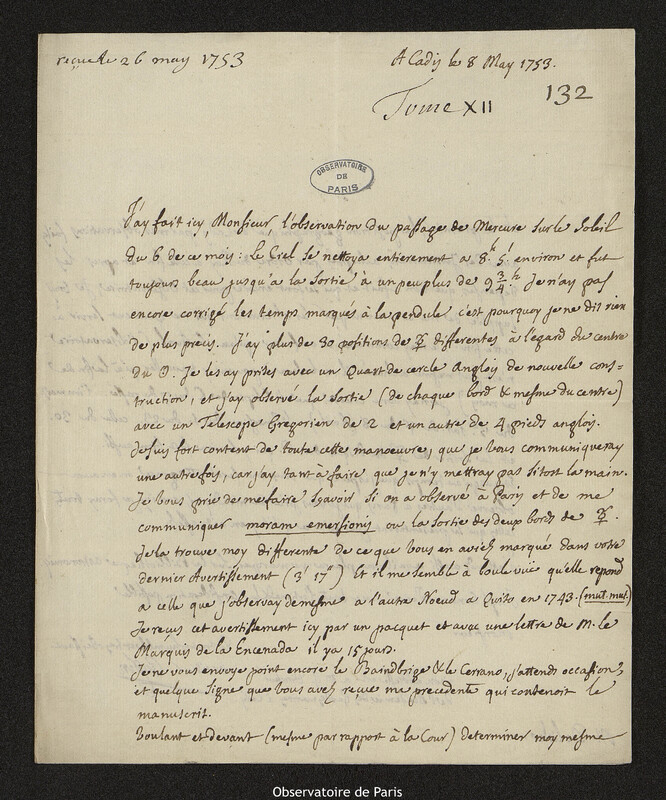 reçue le 26 may 1753
A Cadis le 8 May 1753.
Tome XII
132
OBSERVATOIRE
DE
PARIS
J'ay fait icy, Monsieur, l'observation du passage de Mercure sur le Soleil
du 6 de ce mois: le Ciel se nettoya entierement a 8h 5' environ et fut
toujours beau jusqu'a la sortie à un peu plus de 9 3/4 h. Je n'ay pas
encore corrigé les temps marqués à la pendule c'est pourquoy je ne dis rien
de plus precis. J'ay plus de 30 positions de ☿ differentes à l'egard du centre
du ☉. Je les ay prises avec un Quart de cercle Anglois de nouvelle cons=
truction, et j'ay observé la sortie (de chaque bord & mesme du centre)
avec un Telescope Gregorien de 2 et un autre de 4 pieds anglois.
Je suis fort content de toute cette manoeuvre, que je vous communiqueray
une autre fois, car j'ay tant à faire que je n'y mettray pas sitost la main.
Je vous prie de me faire sçavoir si on a observé à Paris et de me
communiquer moram emersionis ou la sortie des deux bords de ☿.
Je la trouve moy differente de ce que vous en aviez marqué dans votre
dernier Avertissement (3' 17") Et il me semble à boule vüe qu'elle repond
a celle que j'observay de mesme a l'autre Noeud a Quito en 1743. (mut. mut.)
Je reçus cet avertissement icy par un pacquet et avec une lettre de M. le
Marquis de la Encenada il y a 15 jours.
Je ne vous envoye point encore le Baindbrige & le Cerrano, j'attends occasion,
et quelque signe que vous avez reçue ma precedente qui contenoit le
manuscrit.
Voulant et devant (mesme par rapport à la Cour) determiner moy mesme
Observatoire de Paris